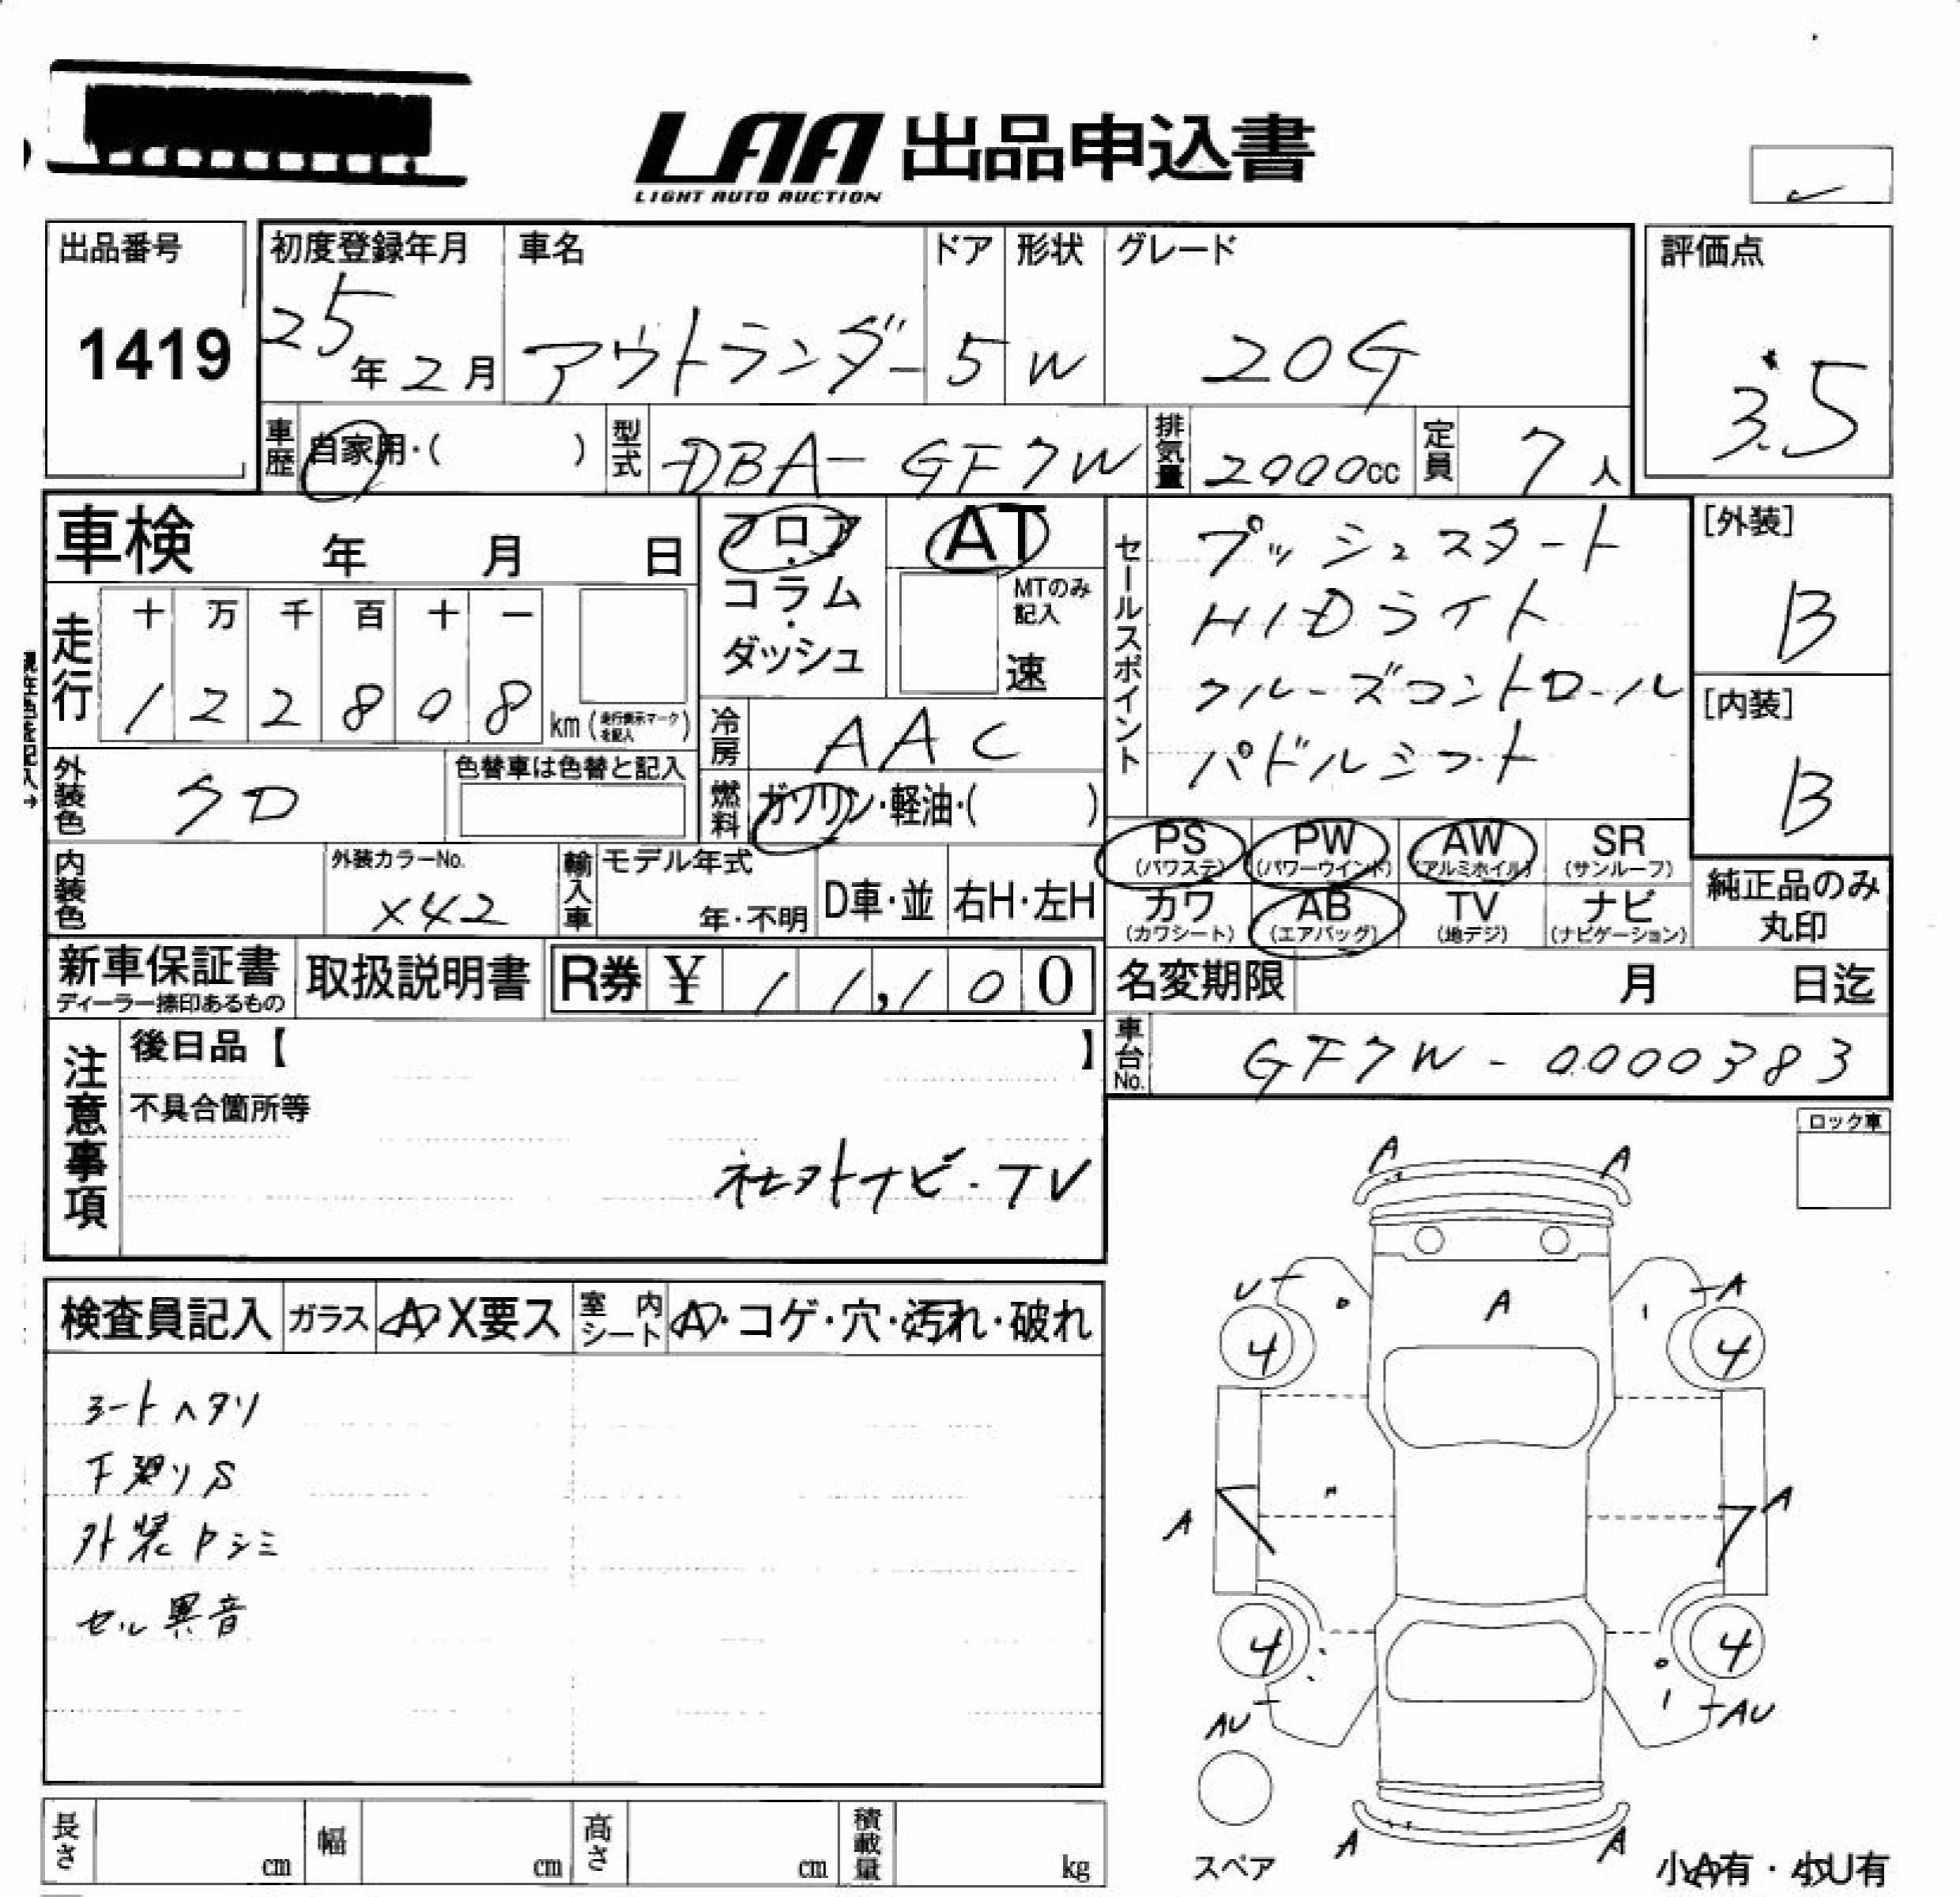 LAA 出品申込書
LIGHT AUTO AUCTION
出品番号
1419
初度登録年月
25年2月
車名
アウトランダー
ドア
5
形状
W
グレード
20G
評価点
3.5
車歴
自家用・( )
型式
DBA-GF7W
排気量
2000cc
定員
7人
車検 年 月 日
フロア・コラム・ダッシュ
AT
MTのみ記入
速
セールスポイント
プッシュスタート
HIDライト
クルーズコントロール
パドルシフト
[外装]
B
[内装]
B
走行
十 万 千 百 十 一
1 2 2 8 0 8 km(走行表示マークを記入)
冷房
AAC
外装色
クロ
色替車は色替と記入
燃料
ガソリン・軽油・( )
PS (パワステ)
PW (パワーウインド)
AW (アルミホイル)
SR (サンルーフ)
カワ (カワシート)
AB (エアバッグ)
TV (地デジ)
ナビ (ナビゲーション)
純正品のみ丸印
内装色
外装カラーNo.
X42
輸入車
モデル年式
年・不明
D車・並
右H・左H
新車保証書
ディーラー捺印あるもの
取扱説明書
R券 ¥ 11,100
名変期限 月 日迄
車台No.
GF7W-0000383
注意事項
後日品【 】
不具合箇所等
社外ナビ・TV
ロック車
検査員記入
ガラス
A X要ス
室内シート
A・コゲ・穴・汚れ・破れ
シートヘタリ
下廻りS
外装Pシミ
セル異音
A A
U A A
4 4
A A
4 4
AU AU
A A
スペア
小A有・小U有
長さ cm
幅 cm
高さ cm
積載量 kg